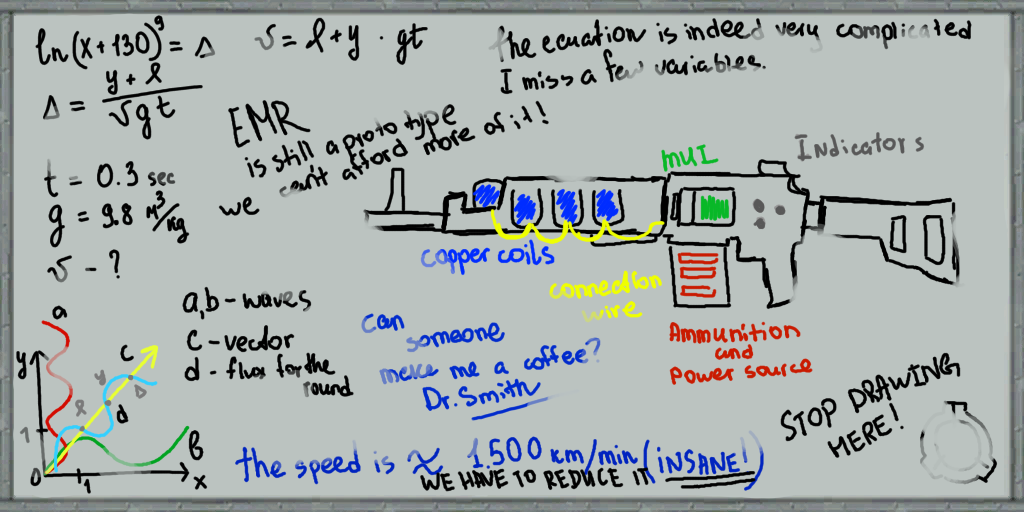 ln(x+130)⁹ = Δ
v = l + y · gt
the ecuation is indeed very complicated
I miss a few variables.
Δ = (y + l) / √gt
EMR
is still a prototype
we can't afford more of it!
t = 0.3 sec
g = 9.8 м³/kg
v - ?
MUI
Indicators
copper coils
connection
wire
Ammunition
and
Power source
a
y
c
y
l
Δ
d
1
b
0
1
x
a,b - waves
c - vector
d - flux for the
round
can
someone
make me a coffee?
Dr. Smith
STOP DRAWING
HERE!
the speed is ≈ 1.500 km/min (INSANE!)
WE HAVE TO REDUCE IT